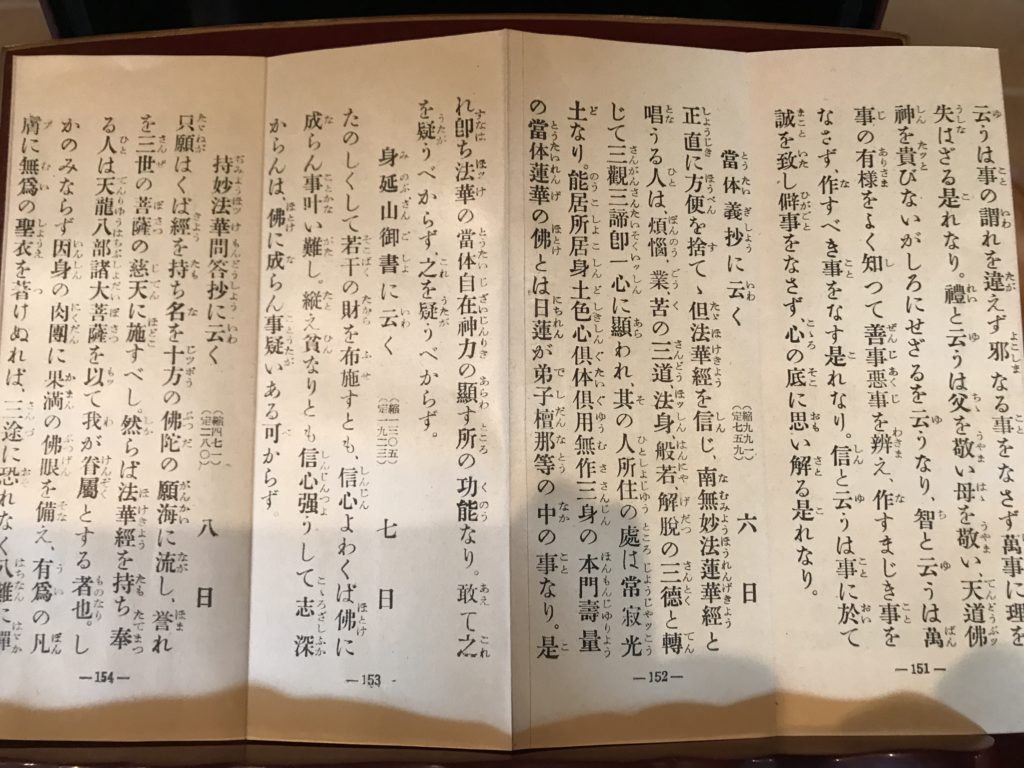 云うは事の謂れを違えず邪なる事をなさず萬事に理を
失はざる是れなり。禮と云うは父を敬い母を敬い、天道佛
神を貴びないがしろにせざるを云うなり、智と云うは萬
事の有様をよく知つて善事悪事を辨え、作すまじき事を
なさず、作すべき事をなす是れなり。信と云うは事に於て
誠を致し僻事をなさず、心の底に思い解る是れなり。
―151―
六日
當体義抄に云く
(縮九九一)
(定七五九)
正直に方便を捨て、但法華經を信じ、南無妙法蓮華經と
唱うる人は、煩惱、業、苦の三道、法身、般若、解脱の三德と轉
じて三觀三諦卽一心に顯われ、其の人所住の處は常寂光
土なり。能居所居身土色心倶体倶用無作三身の本門壽量
の當体蓮華の佛とは日蓮が弟子檀那等の中の事なり。是
―152―
れ卽ち法華の當體自在神力の顯す所の功能なり。敢て之
を疑うべからず之を疑うべからず。
七日
身延山御書に云く
(縮一三〇五)
たのしくして若干の財を布施すとも、信心よわくば佛に
成らん事叶い難し。縦え貧なりとも信心强うして志深
からんは、佛に成らん事疑いある可からず。
―153―
八日
持妙法華問答抄に云く
(縮四七一)
(定二八〇)
只願はくば經を持ち名を十方の佛陀の願海に流し、誉れ
を三世の菩薩の慈天に施すべし。然らば法華經を持ち奉
る人は天龍八部諸大菩薩を以て我が眷屬とする者也。し
かのみならず因身の肉團に果満の佛眼を備え、有爲の凡
膚に無爲の聖衣を著けぬれば、三途に恐れなく八難に憚
―154―